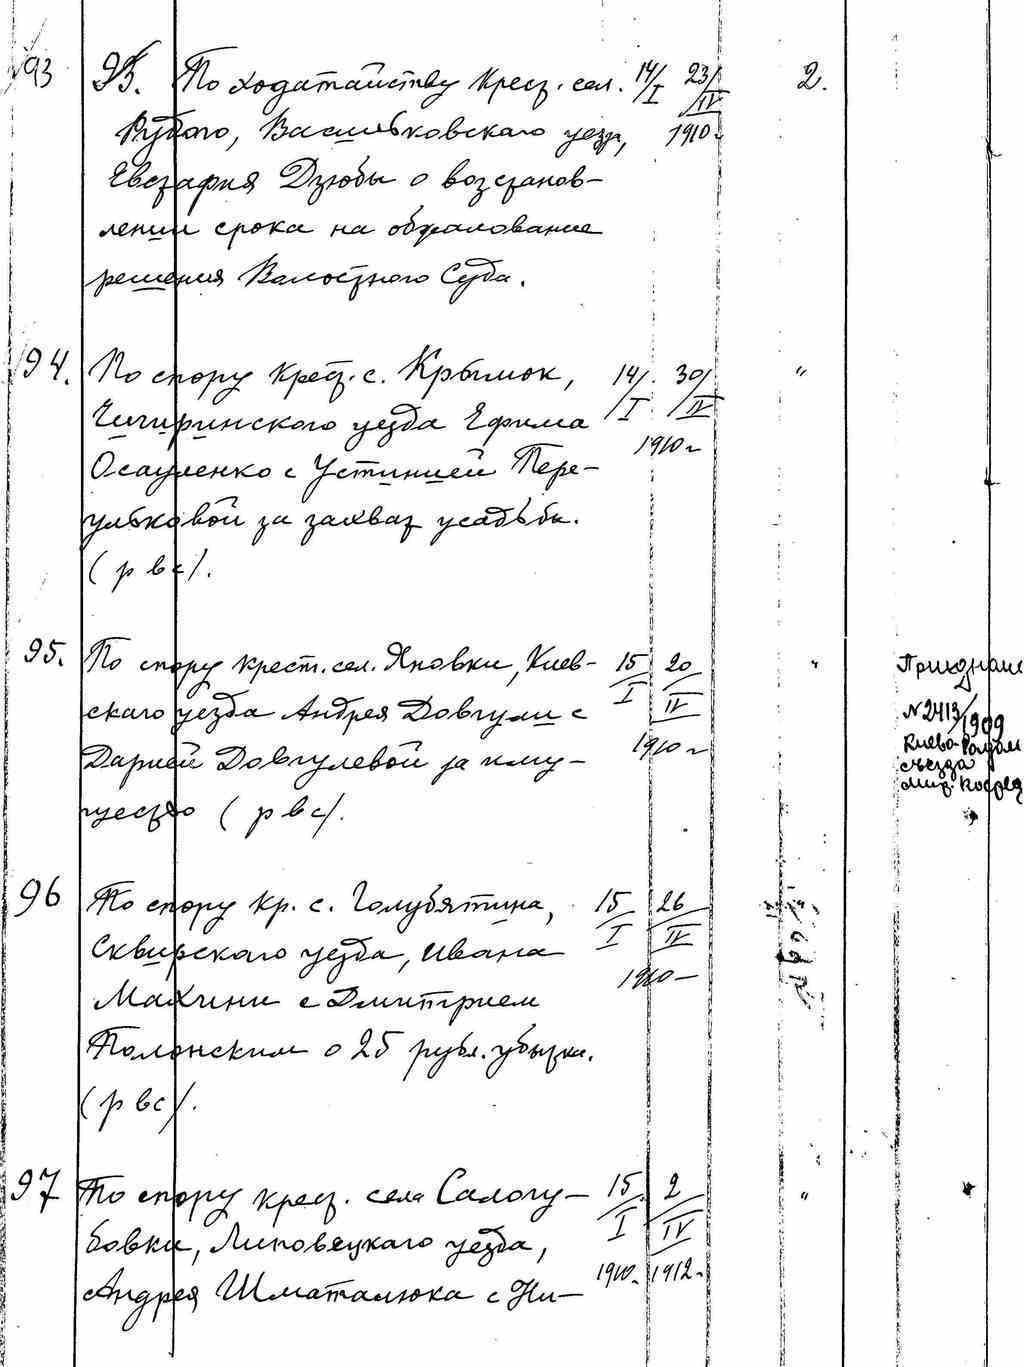 93 93. По ходатайству крест. сел. 14/I 23/IV 2.
Рудого, Васильковскаго уезда, 1910 г
Евстафия Дзюбы о возстанов-
лении срока на обжалование
решения Волостного Суда.
94. По спору крест. с. Крымок, 14/I 30/IV "
Чигиринского уезда Ефима 1910 г
Осауленко с Устинией Пере-
ульковой за захват усадьбы.
(р вс).
95. По спору крест. сел. Яновки, Киев- 15/I 20/IV "
скаго уезда Андрея Довгули с 1910 г
Дарией Довгулевой за иму-
щество (р вс).
№2413/1909
Киево-
съезда
мир. посред
96 По спору кр. с. Голубятина, 15/I 26/IV
Сквирскаго уезда, Ивана 1910
Махини с Дмитрием
Полонским о 25 рубл. убытки.
(р вс).
97 По спору крест. села Сологу- 15/I 2/IV "
бовки, Липовецкаго уезда, 1910. 1912.
Андрея Шматалюка с Ни-